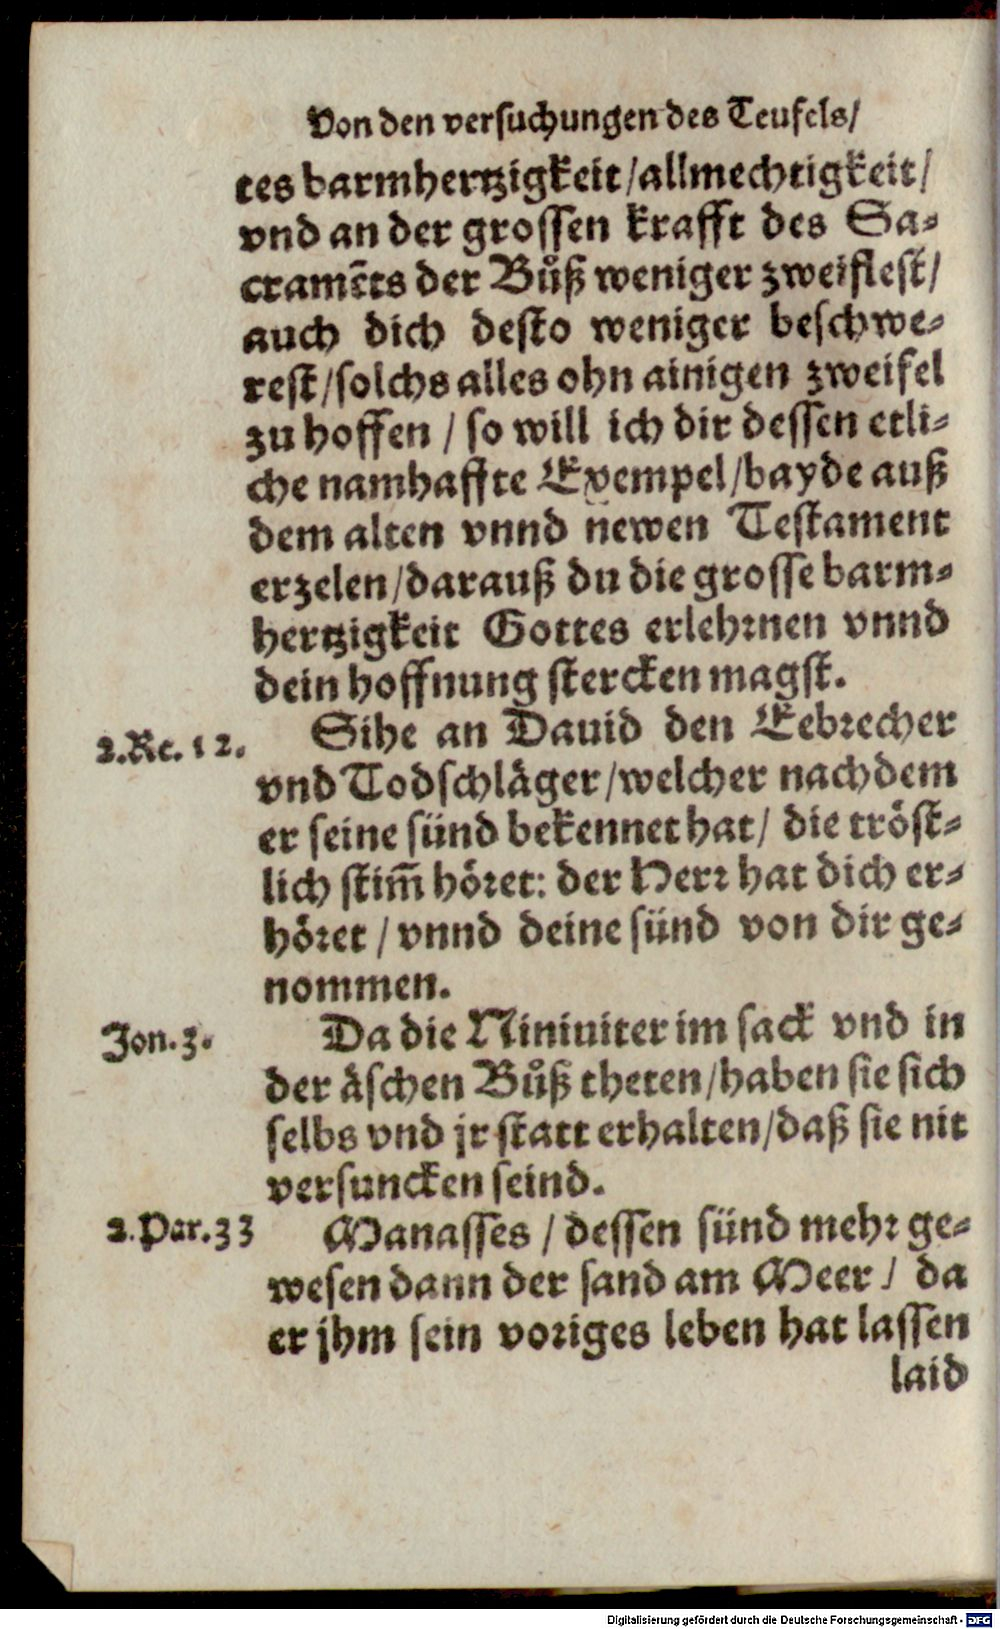 Von den versuchungen des Teufels/
tes barmhertzigkeit/allmechtigkeit/
vnd an der grossen krafft des Sa-
cramẽts der Bůß weniger zweiflest/
auch dich desto weniger beschwe-
rest/solchs alles ohn ainigen zweifel
zu hoffen / so will ich dir dessen etli-
che namhaffte Exempel/bayde auß
dem alten vnnd newen Testament
erzelen/darauß du die grosse barm-
hertzigkeit Gottes erlehrnen vnnd
dein hoffnung stercken magst.
2.Re.12. Sihe an Dauid den Eebrecher
vnd Todschläger/welcher nachdem
er seine sünd bekennet hat/ die tröst-
lich stim̃ höret: der Herr hat dich er-
höret / vnnd deine sünd von dir ge-
nommen.
Jon.3. Da die Niniuiter im sack vnd in
der äschen Bůß theten/haben sie sich
selbs vnd jr statt erhalten/daß sie nit
versuncken seind.
2.Par.33 Manasses / dessen sünd mehr ge-
wesen dann der sand am Meer / da
er jhm sein voriges leben hat lassen
laid
Digitalisierung gefördert durch die Deutsche Forschungsgemeinschaft - DFG